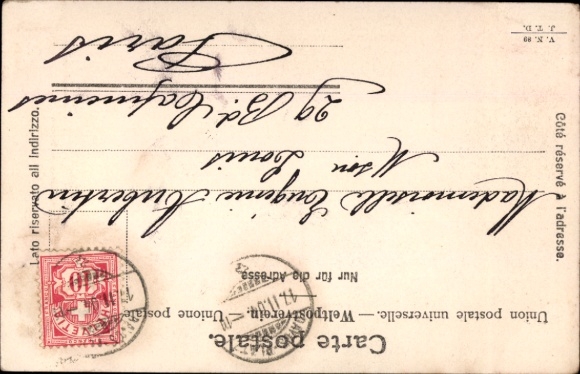 Carte postale.
Union postale universelle. — Weltpostverein. — Unione postale
Nur für die Adresse
Côté réservé à l'adresse.
Lato riservato all indirizzo.
Mademoiselle Eugénie Aubertin
Mson Louis
29 Bd. Capucines
Paris
V. N. 89
J. T. D.
10
17.II.05